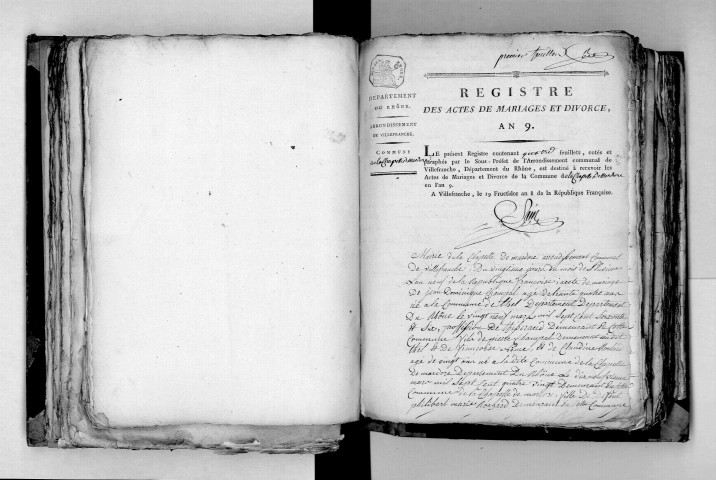 premier feuillet
DÉPARTEMENT
DU RHÔNE.
ARRONDISSEMENT
DE VILLEFRANCHE.
COMMUNE
de la Chapelle de mardore
REGISTRE
DES ACTES DE MARIAGES ET DIVORCE,
AN 9.
LE présent Registre contenant feuillets, cotés et
paraphés par le Sous-Préfet de l'Arrondissement communal de
Villefranche, Département du Rhône, est destiné à recevoir les
Actes de Mariages et Divorce de la Commune de la Chapelle de mardore
en l'an 9.
A Villefranche, le 19 Fructidor an 8 de la République Française.
Mairie de la Chapelle de mardore arrondissement Communal
de villefranche. Du vingtieme jour du mois de
L'an neuf de la Republique françoise; acte de mariage
de jean Dominique agé de trente quatre ans
né a la Commune de Thel Departement Departement
Du Rhône le vingt neuf mars mil Sept Cent Soixante
et Six, profession de Demeurant a Cette
Commune fils de Demeurant audit
Thel et de françoise et de Claudine
agée de vingt ans né a ladite Commune de la Chapelle
de mardore Departement Du Rhône le
mars mil Sept Cent quatre vingt Demeurant a
Commune de la Chapelle de mardore fille de
philibert marie Demeurant de Cette Commune